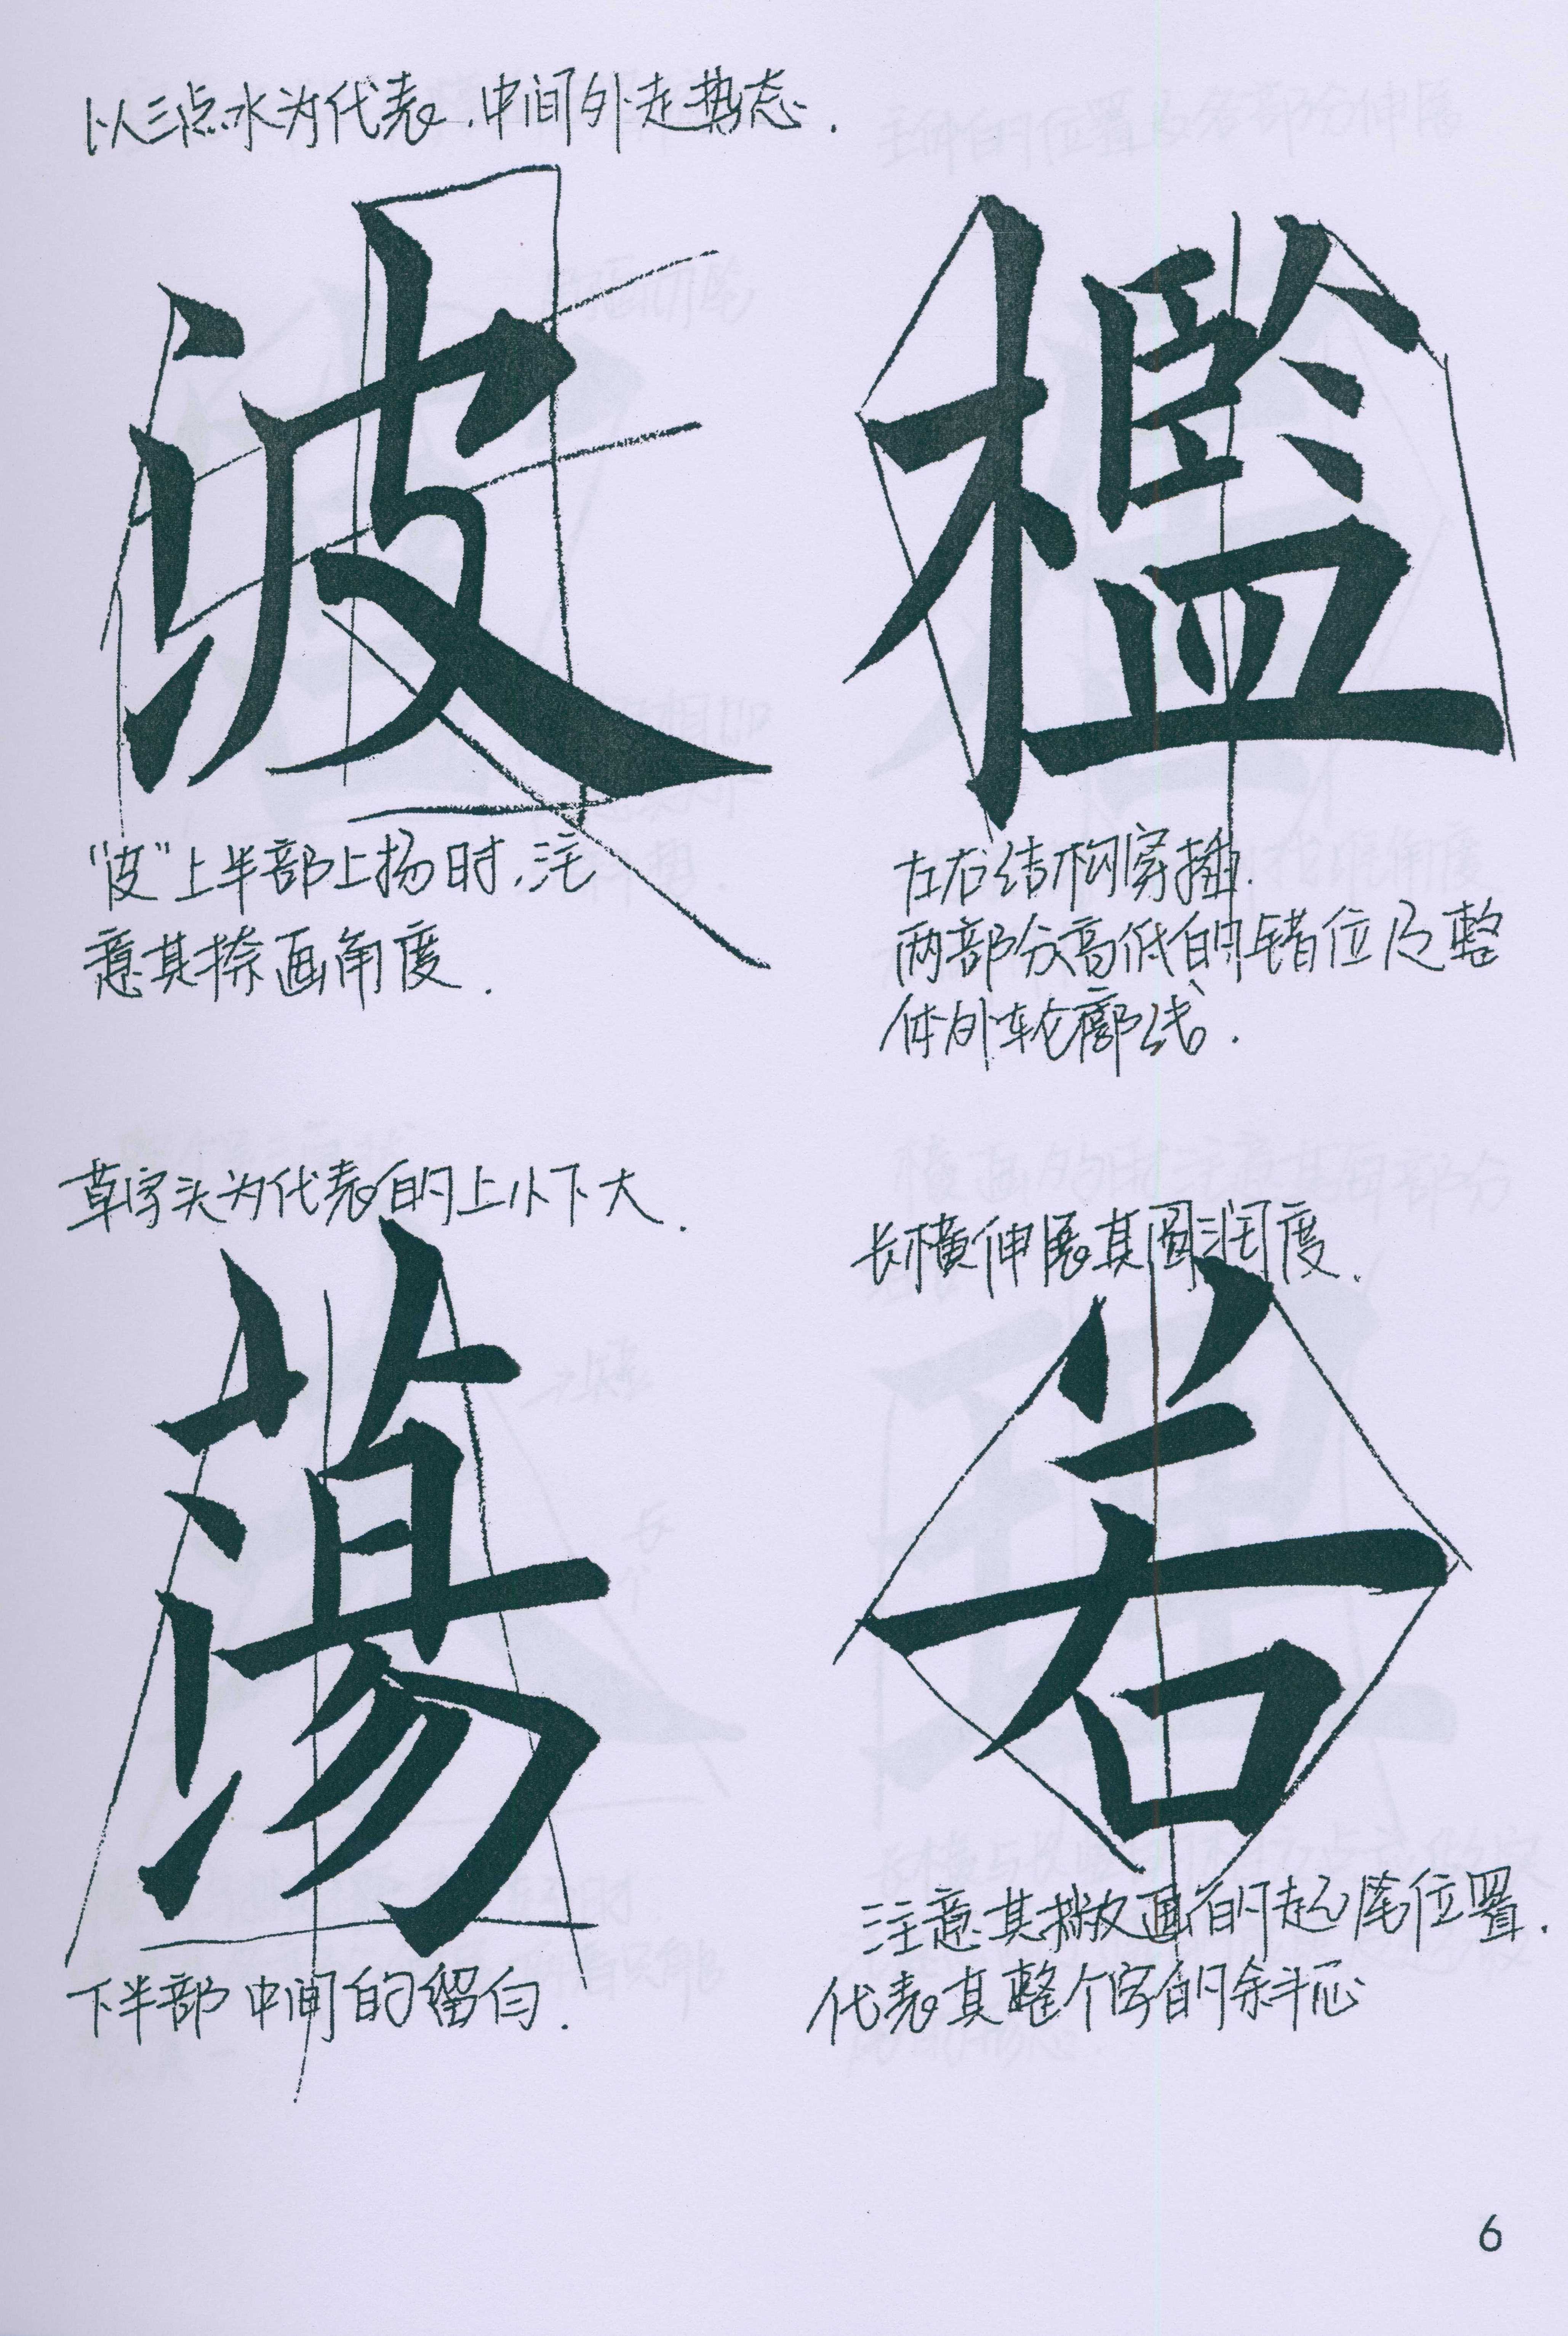 以三点水为代表，中间外走势态.
波
“皮”上半部上扬时，注
意其捺画角度.
檻
左右结构穿插.
两部分高低的错位及整
体外轮廓线.
草字头为代表的上小下大.
蕩
下半部中间的留白.
长横伸展其圆润度.
若
注意其撇画的起尾位置.
代表其整个字的
6